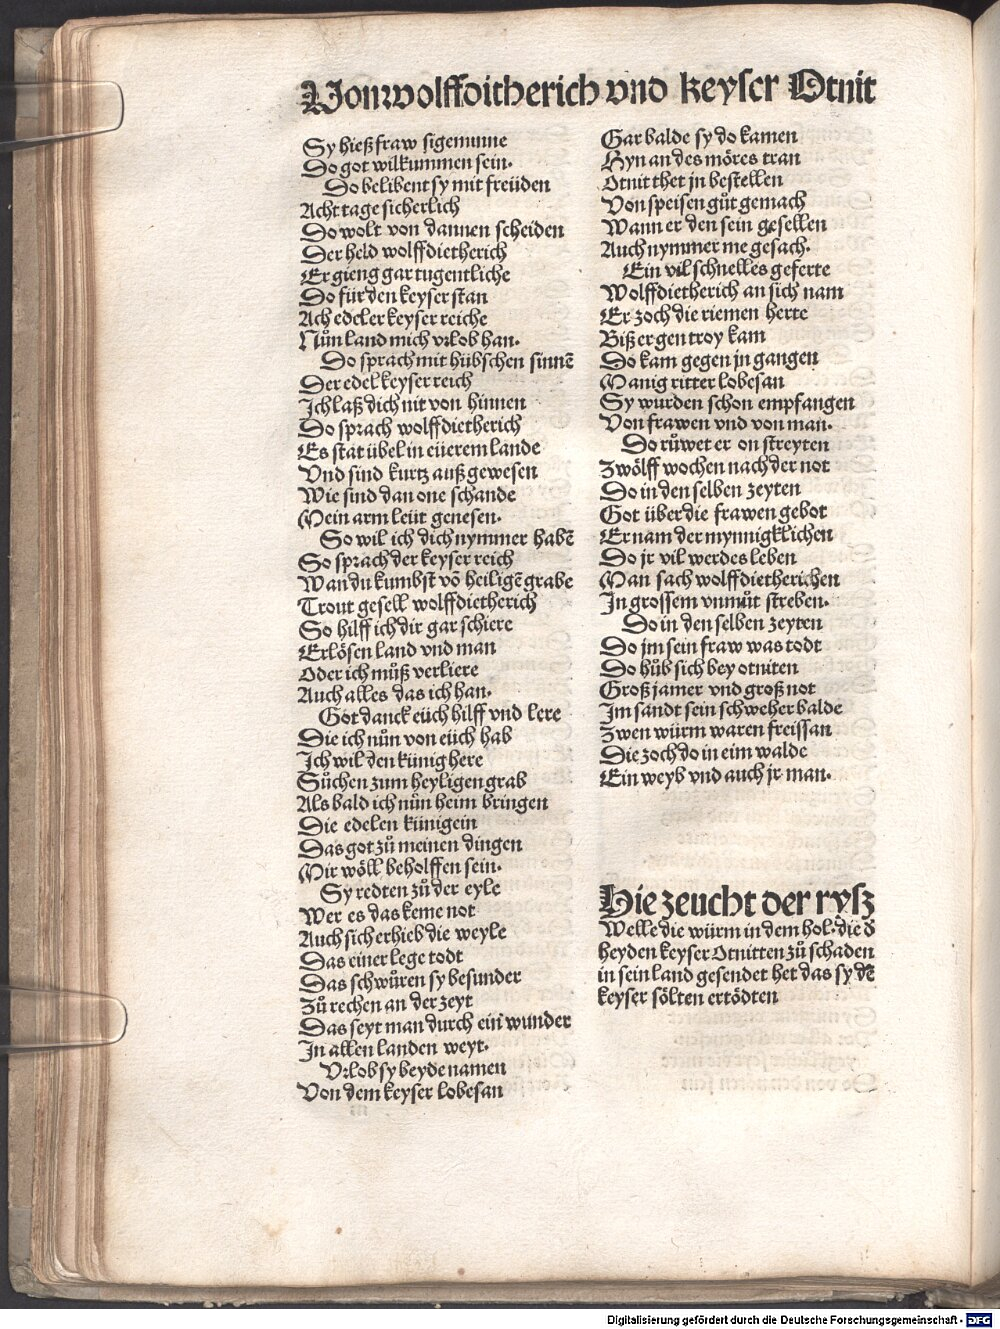 Von wolffditherich vnd keyser Otnit
Sy hieß fraw sigeminne
Do got wilkummen sein.
Do belibent sy mit freüden
Acht tage sicherlich
Do wolt von dannen scheiden
Der held wolffdietherich
Er gieng gar tugentliche
Do für den keyser stan
Ach edeler keyser reiche
Nůn land mich vrlob han.
Do sprach mit hübschen sinnē
Der edel keyser reich
Ich laß dich nit von hinnen
Do sprach wolffdietherich
Es stat übel in eüerem lande
Vnd sind kurtz auß gewesen
Wie sind dan one schande
Mein arm leüt genesen.
So wil ich dich nymmer habē
So sprach der keyser reich
Wan du kumbst vō heiligē grabe
Trout gesell wolffdietherich
So hilff ich dir gar schiere
Erlösen land vnd man
Oder ich můß verliere
Auch alles das ich han.
Got danck eüch hilff vnd lere
Die ich nůn von eüch hab
Ich wil den künig here
Sůchen zum heyligen grab
Als bald ich nůn heim bringen
Die edelen künigein
Das got zů meinen dingen
Mir wöll beholffen sein.
Sy redten zů der eyle
Wer es das keme not
Auch sich erhieb die weyle
Das einer lege todt
Das schwůren sy besunder
Zů rechen an der zeyt
Das seyt man durch ein wunder
In allen landen weyt.
Vrlob sy beyde namen
Von dem keyser lobesan
Gar balde sy do kamen
Hyn an des möres tran
Otnit thet jn bestellen
Von speisen gůt gemach
Wann er den sein gesellen
Auch nymmer me gesach.
Ein vil schnelles geferte
Wolffdietherich an sich nam
Er zoch die riemen herte
Biß er gen troy kam
Do kam gegen jn gangen
Manig ritter lobesan
Sy wurden schon empfangen
Von frawen vnd von man.
Do růwet er on streyten
Zwölff wochen nach der not
Do in den selben zeyten
Got über die frawen gebot
Er nam der mynnigklichen
Do jr vil werdes leben
Man sach wolffdietherichen
In grossem vnmůt streben.
Do in den selben zeyten
Do jm sein fraw was todt
Do hůb sich bey otniten
Groß jamer vnd groß not
Im sandt sein schweher balde
Zwen würm waren freissan
Die zoch do in eim walde
Ein weyb vnd auch jr man.
Hie zeucht der rysz
Welle die würm in dem hol. die d̄
heyden keyser Otnitten zů schaden
in sein land gesendet het das sy dē
keyser sölten ertödten
Digitalisierung gefördert durch die Deutsche Forschungsgemeinschaft - DFG